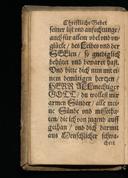 Christliche Gebet
seiner list und anfechtung/
auch für allem ubel und un-
glück/ des Leibes und der
SEElen/ so gnediglich
behütet und bewaret hast.
Und bitte dich nun mit ei-
nem demütigen hertzen/
HERR ALlmechtiger
GOTT/ du wollest mir
armen Sünder/ alle mei-
ne Sünde und missetha-
ten/ die ich von jugend auff
gethan/ und dich damit
aus Menschlicher schwa-
cheit